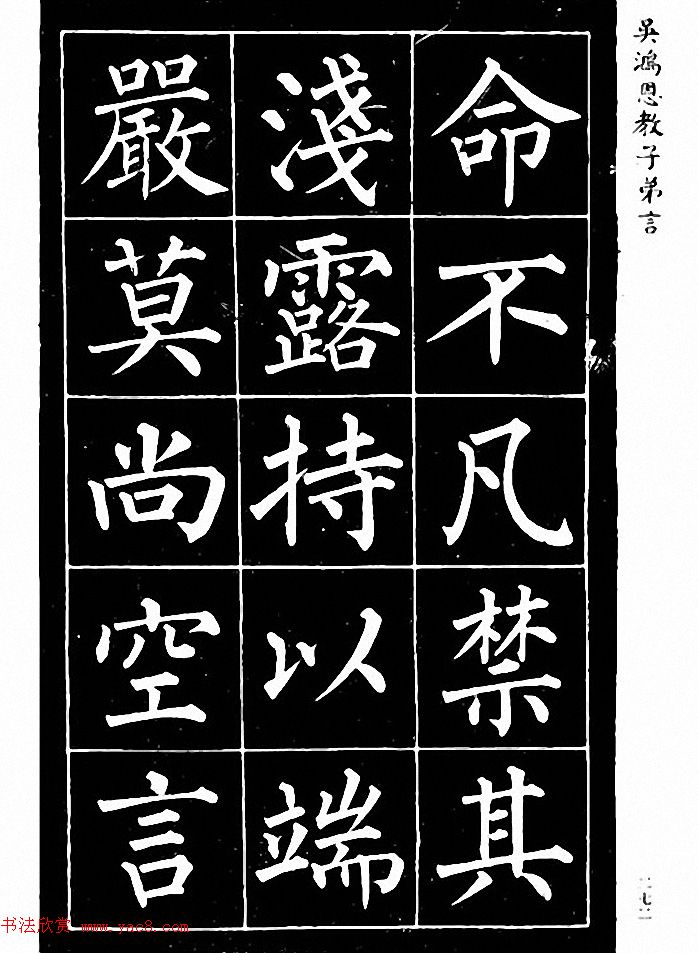 吳鴻恩教子弟言
命不凡禁其
淺露持以端
嚴莫尚空言
一七二
书法欣赏 www.yac8.com